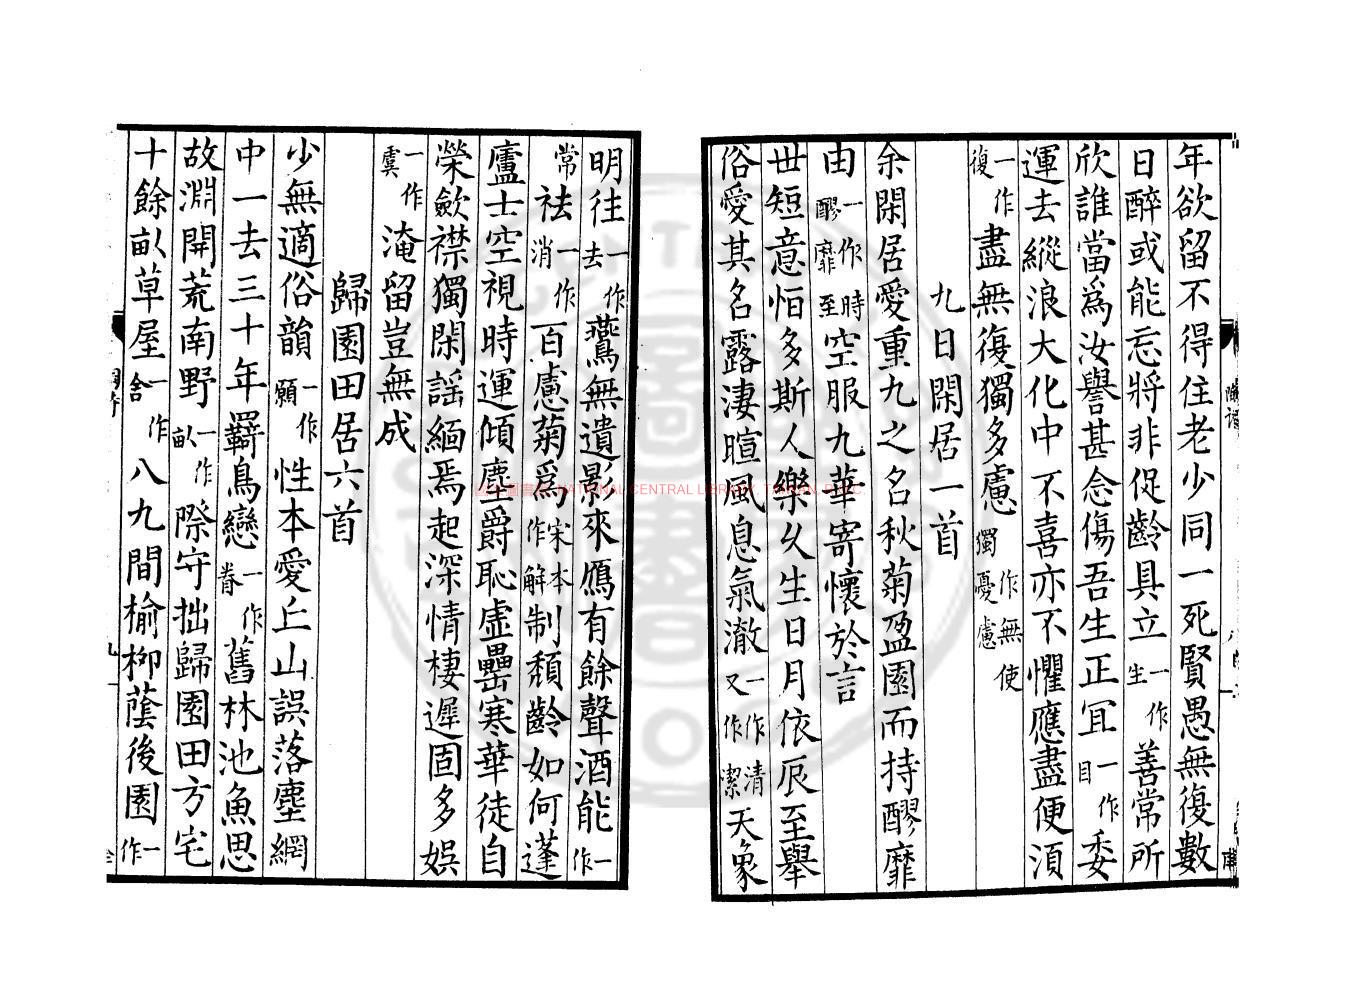 年欲留不得住老少同一死賢愚無復數
日醉或能忘將非促齡具立一作生善常所
欣誰當為汝譽甚念傷吾生正宜一作目委
運去縱浪大化中不喜亦不懼應盡便須
一作復盡無復獨多慮一作無使獨憂慮
九日閑居一首
余閑居愛重九之名秋菊盈園而持醪靡
由一作時醪靡至空服九華寄懷於言
世短意恒多斯人樂久生日月依辰至舉
俗愛其名露淒暄風息氣澈一作清又作潔天象
明往一作去鷰無遺影來鴈有餘聲酒能一作
常祛一作消百慮菊為宋本作解制頹齡如何蓬
廬士空視時運傾塵爵恥虛罍寒華徒自
榮斂襟獨閑謡緬焉起深情棲遲固多娛
一作虞淹留豈無成
歸園田居六首
少無適俗韻一作願性本愛丘山誤落塵網
中一去三十年羇鳥戀一作眷舊林池魚思
故淵開荒南野一作畝際守拙歸園田方宅
十餘畝草屋一作舍八九間榆柳蔭後園一作
NATIONAL CENTRAL LIBRARY, TAIWAN, R.O.C.